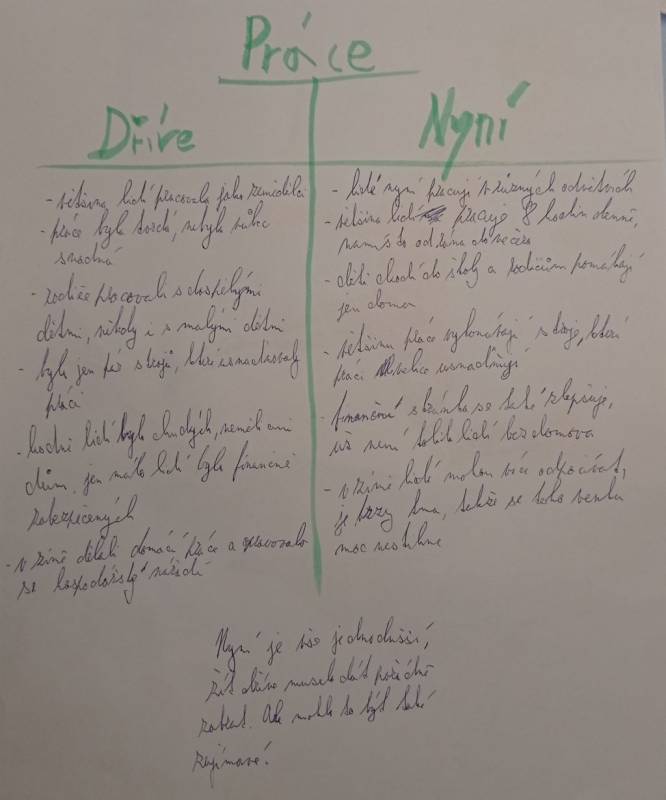 Práce
Dříve
- většina lidí pracovala jako zemědělci
- práce byla tvrdá, nebyla vůbec
snadná
- rodiče pracovali s dospělými
dětmi, někdy i s malými dětmi
- bylo jen pár strojů, které usnadňovaly
práci
- hodně lidí bylo chudých, neměli ani
dům, jen málo lidí bylo finančně
zabezpečených
- v zimě dělali domácí práce a
se hospodářské nářadí
Nyní
- lidé nyní pracují v různých odvětvích
- většina lidí pracuje 8 hodin denně,
namísto od rána do večera
- děti chodí do školy a rodičům pomáhají
jen doma
- většinu práce vykonávají stroje, které
práci velice usnadňují
- finanční stránka se také zlepšuje,
už není tolik lidí bez domova
- v zimě lidé mohou více odpočívat,
je brzy tma, takže se toho venku
moc nestihne
Nyní je vše jednodušší,
žít dříve muselo dát pořádně
zabrat. Ale mohlo to být také
zajímavé.